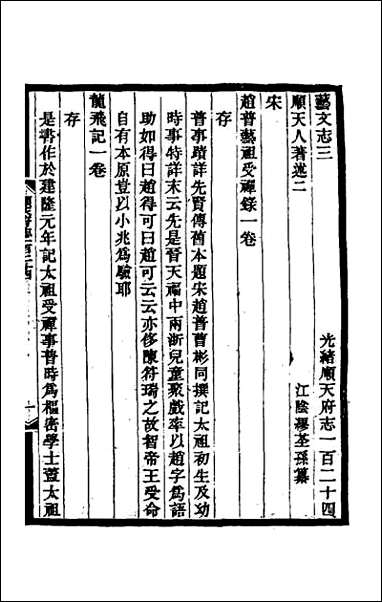 藝文志三　光緒順天府志一百二十四
順天人著述二　江陰繆荃孫纂
宋
趙普藝祖受禪錄一卷
存
普事蹟詳先賢傳舊本題宋趙普曹彬同撰記太祖初生及功
時事特詳末云先是晉天福中兩浙兒童聚戲率以趙字爲語
助如得曰趙得可曰趙可云云亦侈陳符瑞之故智帝王受命
自有本原豈以小兆爲驗耶
龍飛記一卷
存
是書作於建隆元年記太祖受禪事普時爲樞密學士蓋太祖